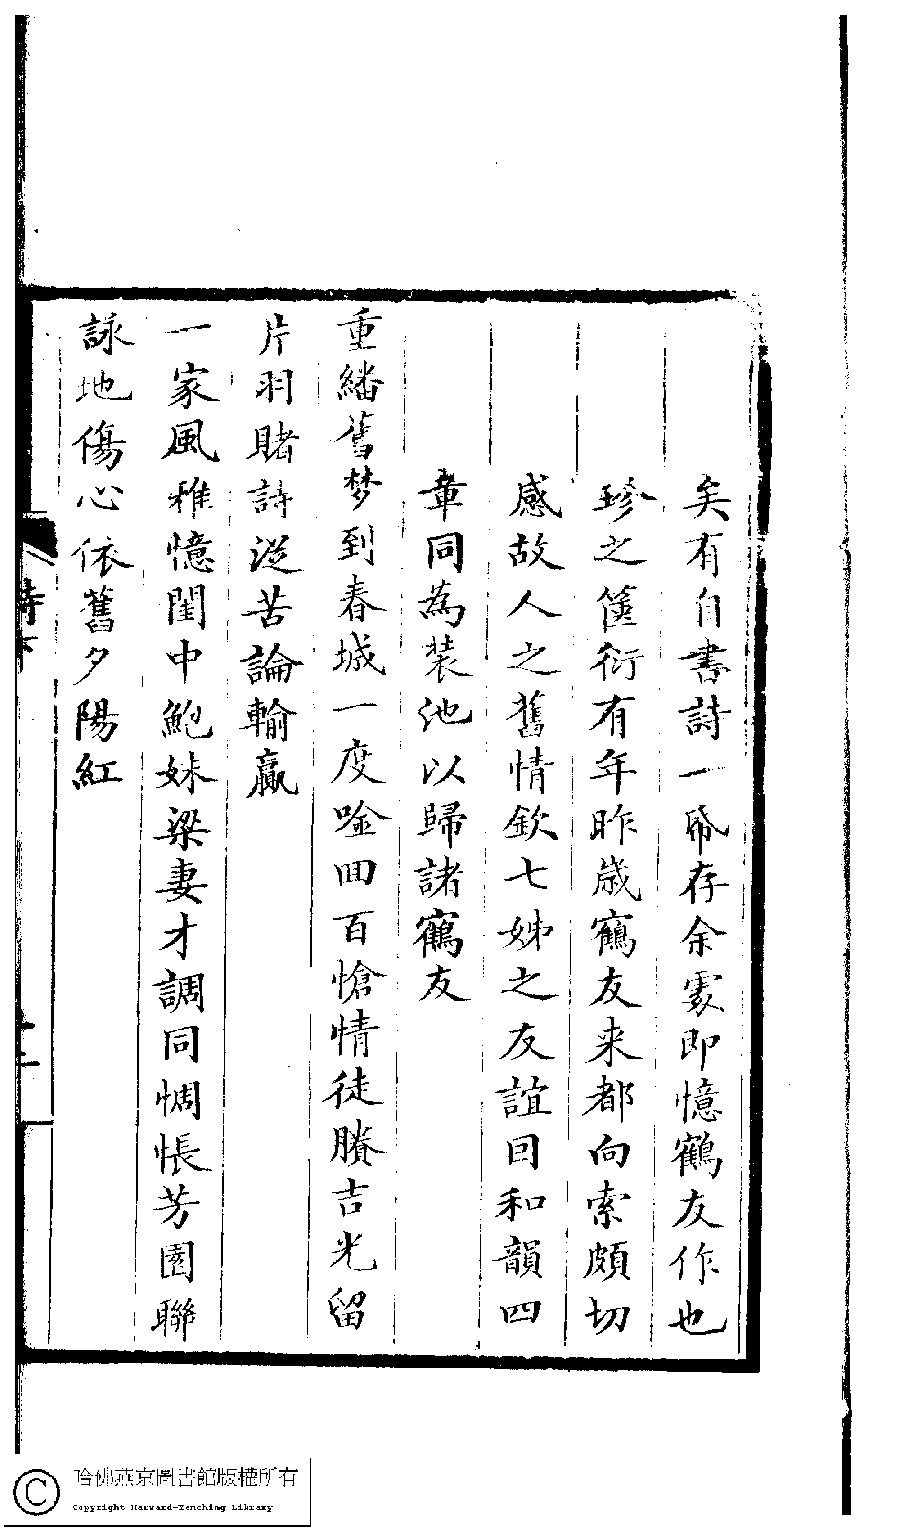 矣有自書詩一帋存余處即憶鶴友作也
珍之篋衍有年昨歲鶴友来都向索頗切
感故人之舊情欽七姊之友誼囙和韻四
章同為装池以歸諸鶴友
重繙舊梦到春城一度唫囬百愴情徒賸吉光留
片羽賭詩從苦論輸贏
一家風雅憶閨中鮑妹梁妻才調同惆悵芳園聯
詠地傷心依舊夕陽紅
詩下
哈佛燕京圖書館版權所有
Copyright Harvard-Yenching Library